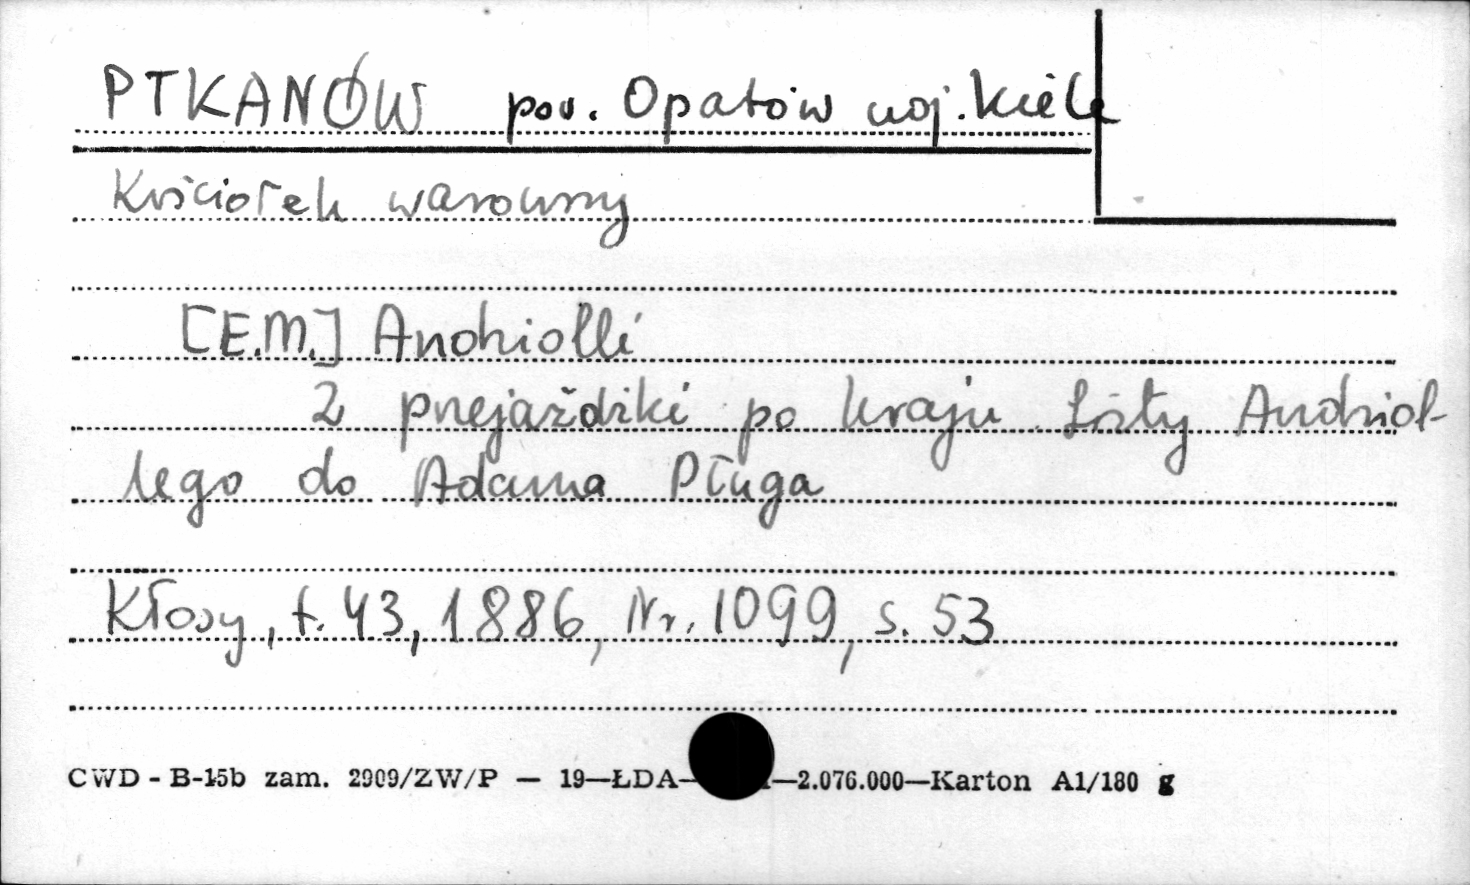 PTKANÓW pow. Opatów woj. Kielc
Kościołek warowny
[E.M.] Andriolli
Z przejażdżki po kraju. Listy Andriol-
lego do Adama Pługa
Kłosy, t. 43, 1886, Nr. 1099, s. 53
CWD - B-15b zam. 2909/ZW/P — 19—ŁDA— —2.076.000—Karton A1/180 g